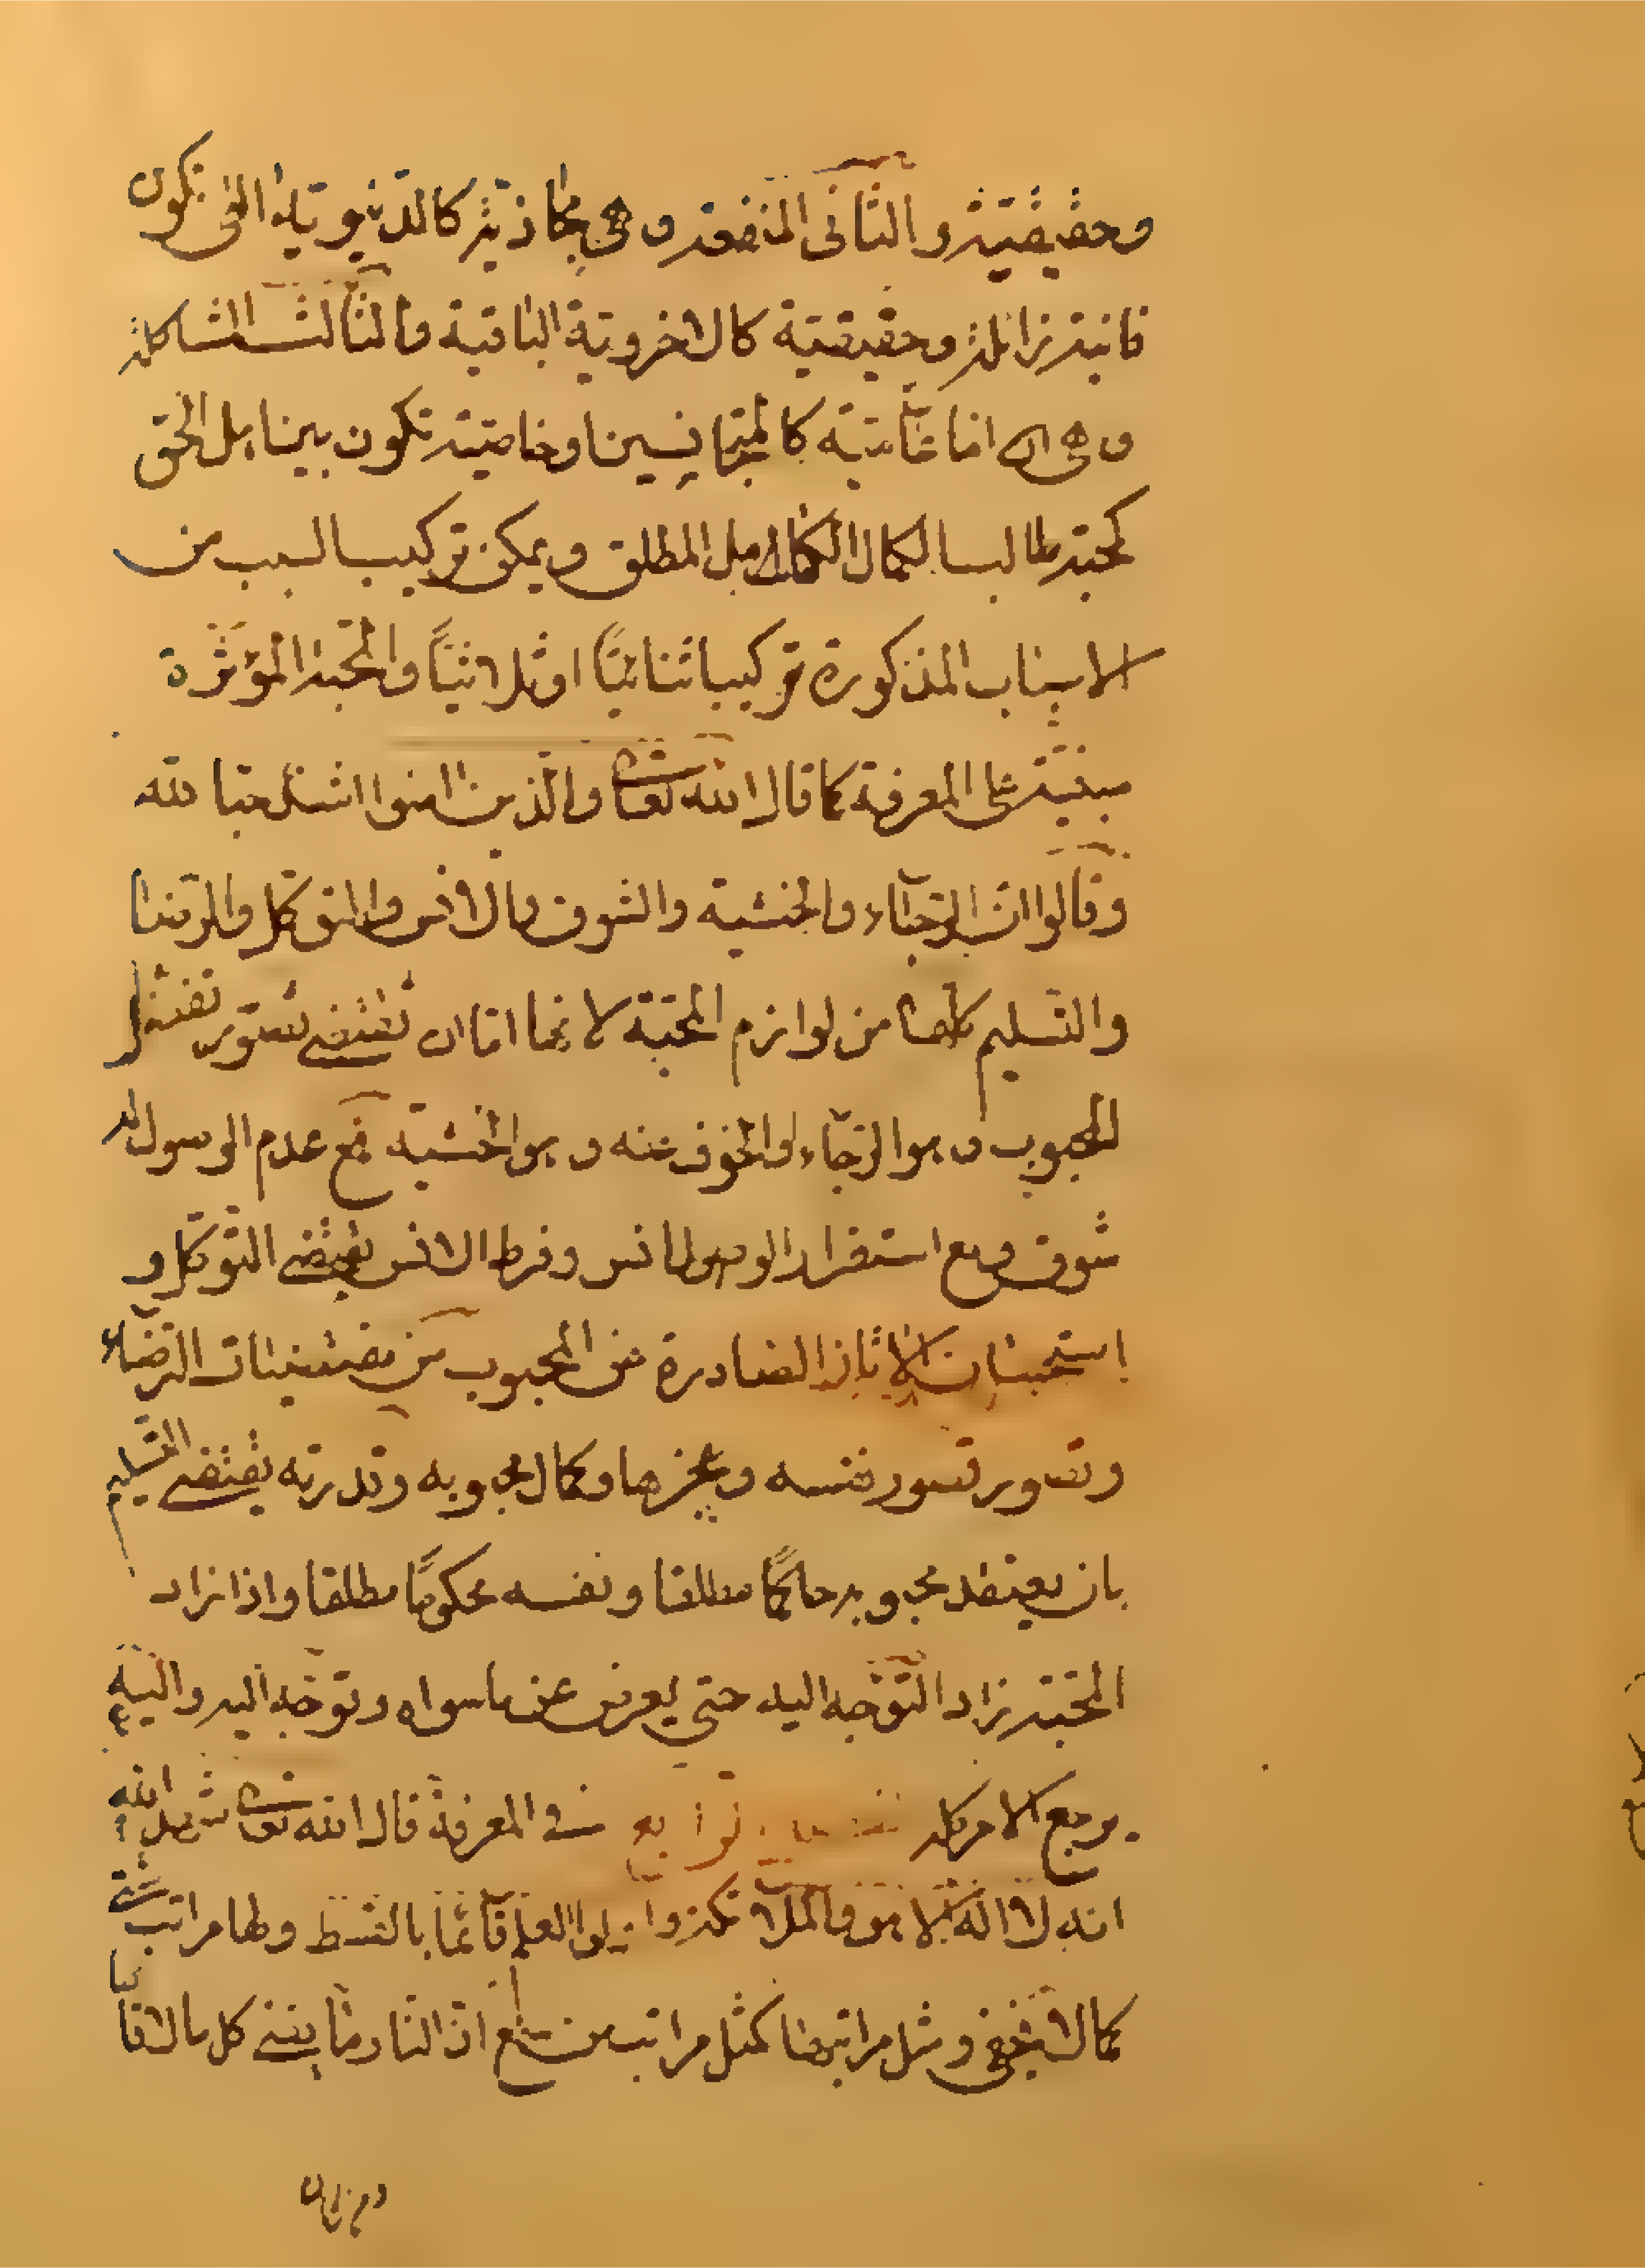 وحقيقية والثانى المنفعة وهى مجازية كالدنيوية التى تكون
فانية زائلة وحقيقية كالاخروية الباقية والثالث المشاكلة
وهى اما عامية كالمتجانسين او خاصية تكون بين اهل الحق
كمحبة طالب الكمال الكامل المطلق ويمكن تركيب السبب من
الاسباب المذكورة تركيبا ثنائيًا او ثلاثيًا والمحبة المؤثرة
مبنية على المعرفة كما قال الله تعالى والذين امنوا اشد حبا لله
وقالوا ان الرجاء والخشية والشوق والانس والتوكل والرضا
والتسليم كلها من لوازم المحبة لانها اما ان تقتضى تصور تفضل
المحبوب وهو الرجاء او الخوف عنه وهو الخشية فمع عدم الوصول له
شوق ومع استقرار الوصول انس وفرط الانس يقتضى التوكل و
استحسان الاثار الصادرة من المحبوب من مقتضيات الرضاء
وتصور قصور نفسه وعجزها وكمال محبوبه وقدرته يقتضى التسليم
بان يعتقد محبوبه حاكمًا مطلقا ونفسه محكومًا مطلقا واذا زاد
المحبة زاد التوجه اليه حتى يعرض عن ما سواه وتوجه اليه واليه
يرجع الامر كله توابع فى المعرفة قال الله تعالى شهد الله
انه لا اله الا هو والملائكة واولوا العلم قائما بالقسط ولها مراتب شتى
كما لا يخفى ومثل مراتبها كمثل مراتب من سمع ان النار مما يفنى كل ما لاقا